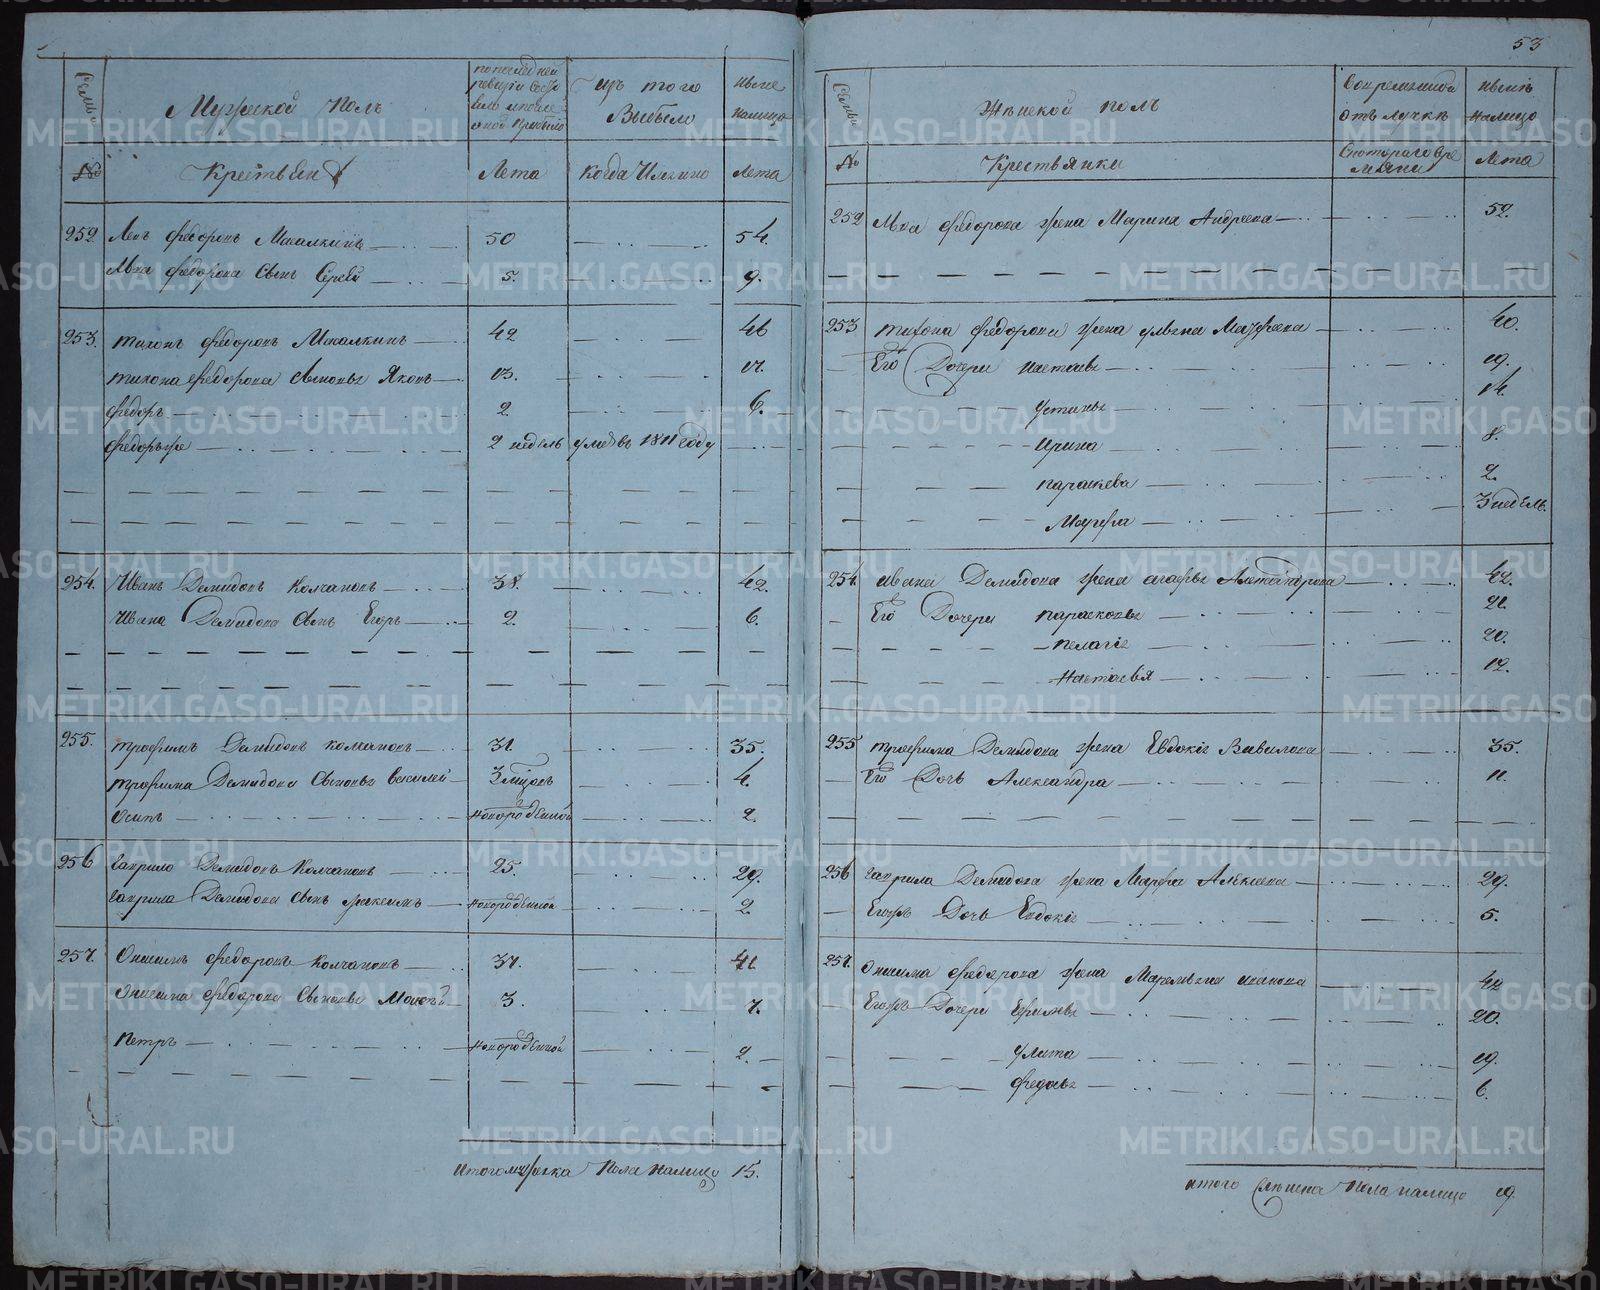 53
Семьи
Мужеской Полъ
по последней ревизии состояло и после оной прибыло
изъ того Выбыло
ныне налицо
№
Крестьяне
Лета
Когда Имянно
Лета
252. Левъ Федоровъ Макалкинъ 50 54.
Льва Федорова Сынъ Сергей 5. 9.
253. Тихонъ Федоровъ Макалкинъ 42 46
Тихона Федорова Сыновья Яковъ 13. 17.
Федоръ 2 6.
Федоръ же 2 недель умеръ въ 1811 году
254. Иванъ Демидовъ Колчановъ 38. 42.
Ивана Демидова Сынъ Егоръ 2. 6.
255. Трофимъ Демидовъ Колчановъ 31. 35.
Трофима Демидова Сыновья Василей 3 мцовъ 4.
Осипъ новорожденной 2.
256 Гаврило Демидовъ Колчановъ 25. 29.
Гаврила Демидова Сынъ новорожденной 2.
257. Онисимъ Федоровъ Колчановъ 37. 41.
Онисима Федорова Сыновья 3. 7.
Петръ новорожденной 2.
Итого мужеска Пола налицо 15.
Семьи
Женской полъ
Во временной отлучке
ныне налицо
№
Крестьянки
Скотораго времяни
Лета
252 Льва Федорова жена Марина Андреева 52.
253 Тихона Федорова жена Ульяна 40.
Его Дочери Настасья 19.
Устинья 14.
Ирина 8.
Параскева 2.
Марфа 3 недель.
254. Ивана Демидова жена Агафья Александрова 42.
Его Дочери Парасковья 21.
Пелагія 20.
Настасья 12.
255 Трофима Демидова жена Евдокія Вавилова 35.
Его Дочь Александра 11.
256 Гаврила Демидова жена Марфа Алексеева 29.
Егожъ Дочь Евдокія 5.
257. Онисима Федорова жена Иванова 42
Егожъ Дочери 20.
Улита 19.
Федосья 6.
итого женска Пола налицо 19.
METRIKI.GASO-URAL.RU